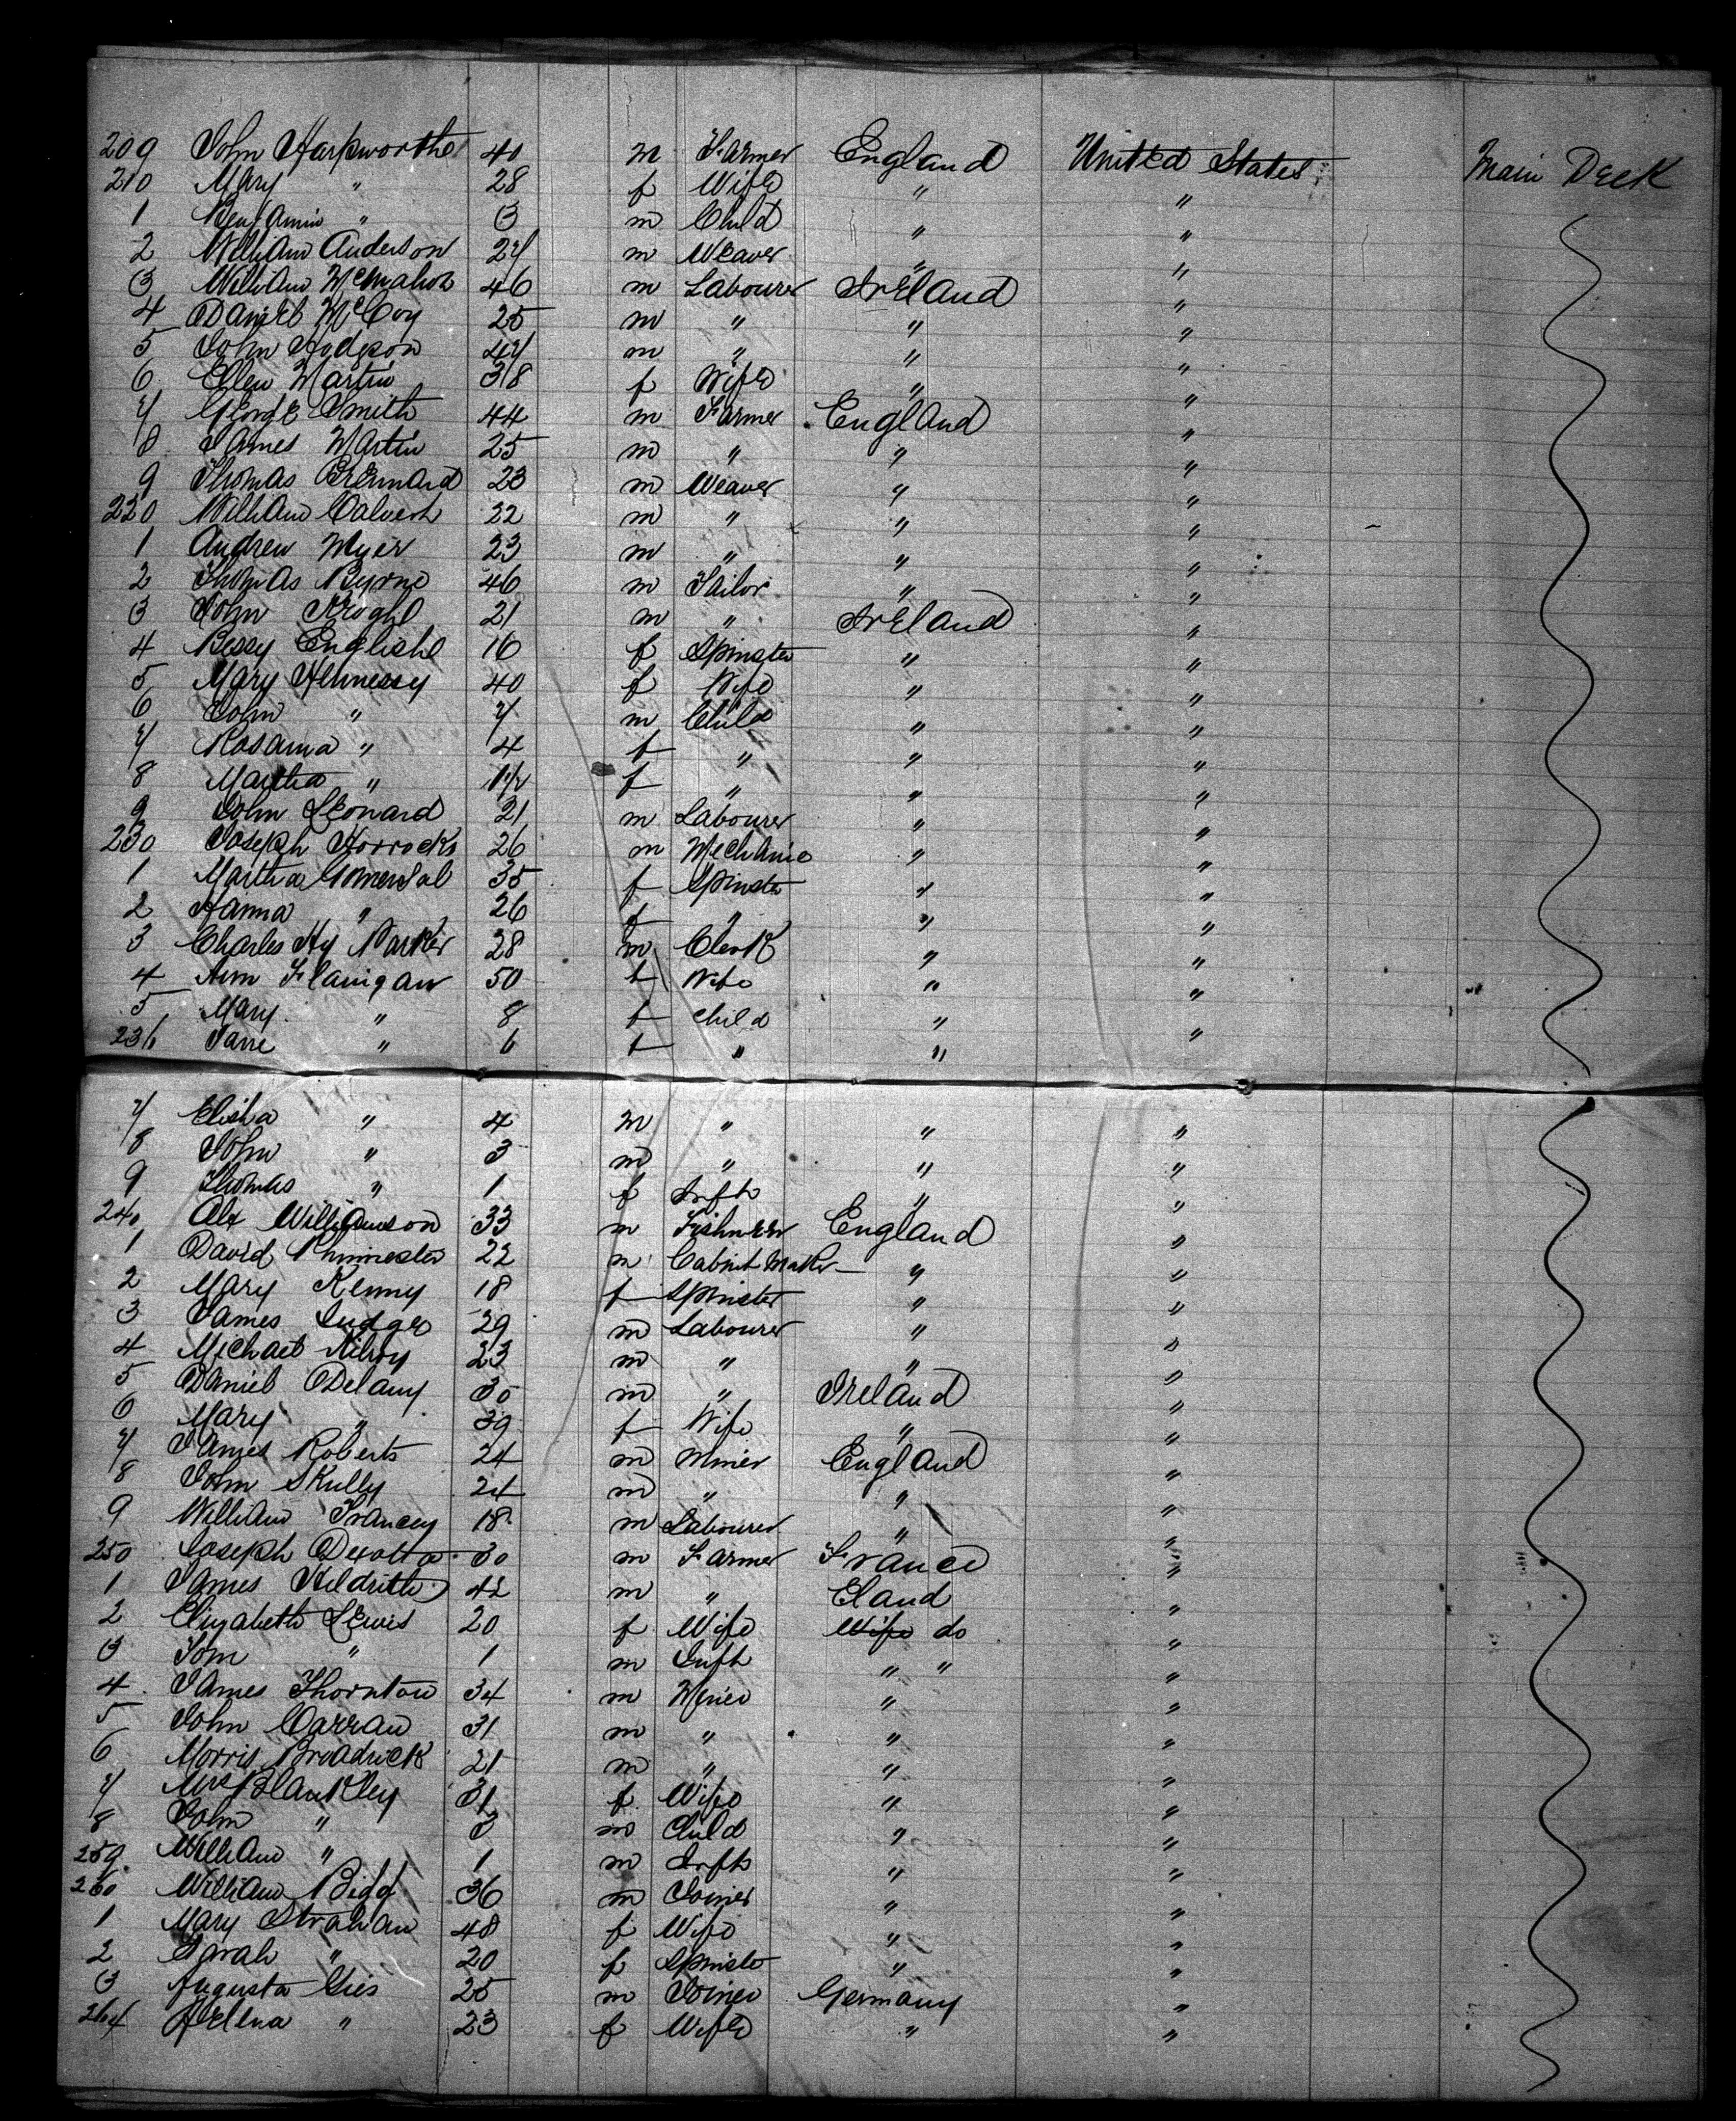 209 John Harpworthe 40 m Farmer England United States Main Deck
210 Mary " 28 f Wife " "
1 Benjamin " 3 m Child " "
2 William Anderson 27 m Weaver " "
3 William McMahon 46 m Labourer Ireland "
4 Daniel McCoy 25 m " " "
5 John Hodgson 47 m " " "
6 Ellen Martin 38 f Wife " "
7 George Smith 44 m Farmer England "
8 James Martin 25 m " " "
9 Thomas 23 m Weaver " "
220 William Calvert 22 m " " "
1 Andrew Myer 23 m " " "
2 Thomas Byrne 46 m Tailor " "
3 John 21 m " Ireland "
4 Bessy Englishe 16 f Spinster " "
5 Mary Hennessy 40 f Wife " "
6 John " 7 m Child " "
7 Rosanna " 4 f " " "
8 Martha " 1 1/2 f " " "
9 John Leonard 21 m Labourer " "
230 Joseph Horrocks 26 m Mechanic " "
1 Martha Gomersal 35 f Spinster " "
2 Hanna " 26 f " " "
3 Charles Hy Parker 28 m Clerk " "
4 Ann Flanigan 50 f Wife " "
5 Mary " 8 f Child " "
236 Jane " 6 f " " "
7 Elisha " 4 m " " "
8 John " 3 m " " "
9 Thomas " 1 f Inft " "
240 Alex Williamson 33 m England "
1 David 22 m Cabint Maker " "
2 Mary Kenny 18 f Spinster " "
3 James Judge 29 m Labourer " "
4 Michael Kilroy 23 m " " "
5 Daniel Delany 30 m " Ireland "
6 Mary " 39 f Wife " "
7 James Roberts 24 m Miner England "
8 John Skully 24 m " " "
9 William Francey 18 m Labourer " "
250 Joseph 30 m Farmer France "
1 James Heldrith 42 m " Eland "
2 Elizabeth Lewis 20 f Wife Wife do "
3 Tom " 1 m Inft " " "
4 James Thornton 34 m Miner " "
5 John Carran 31 m " " "
6 Morris Broadrick 21 m " " "
7 Mrs Blankley 31 f Wife " "
8 John " 3 m Child " "
259 William " 1 m Inft " "
260 William Bigg 36 m Joiner " "
1 Mary Strahan 48 f Wife " "
2 Sarah " 20 f Spinster " "
3 Augusta Gies 25 m Joiner Germany "
264 Helena " 23 f Wife " "